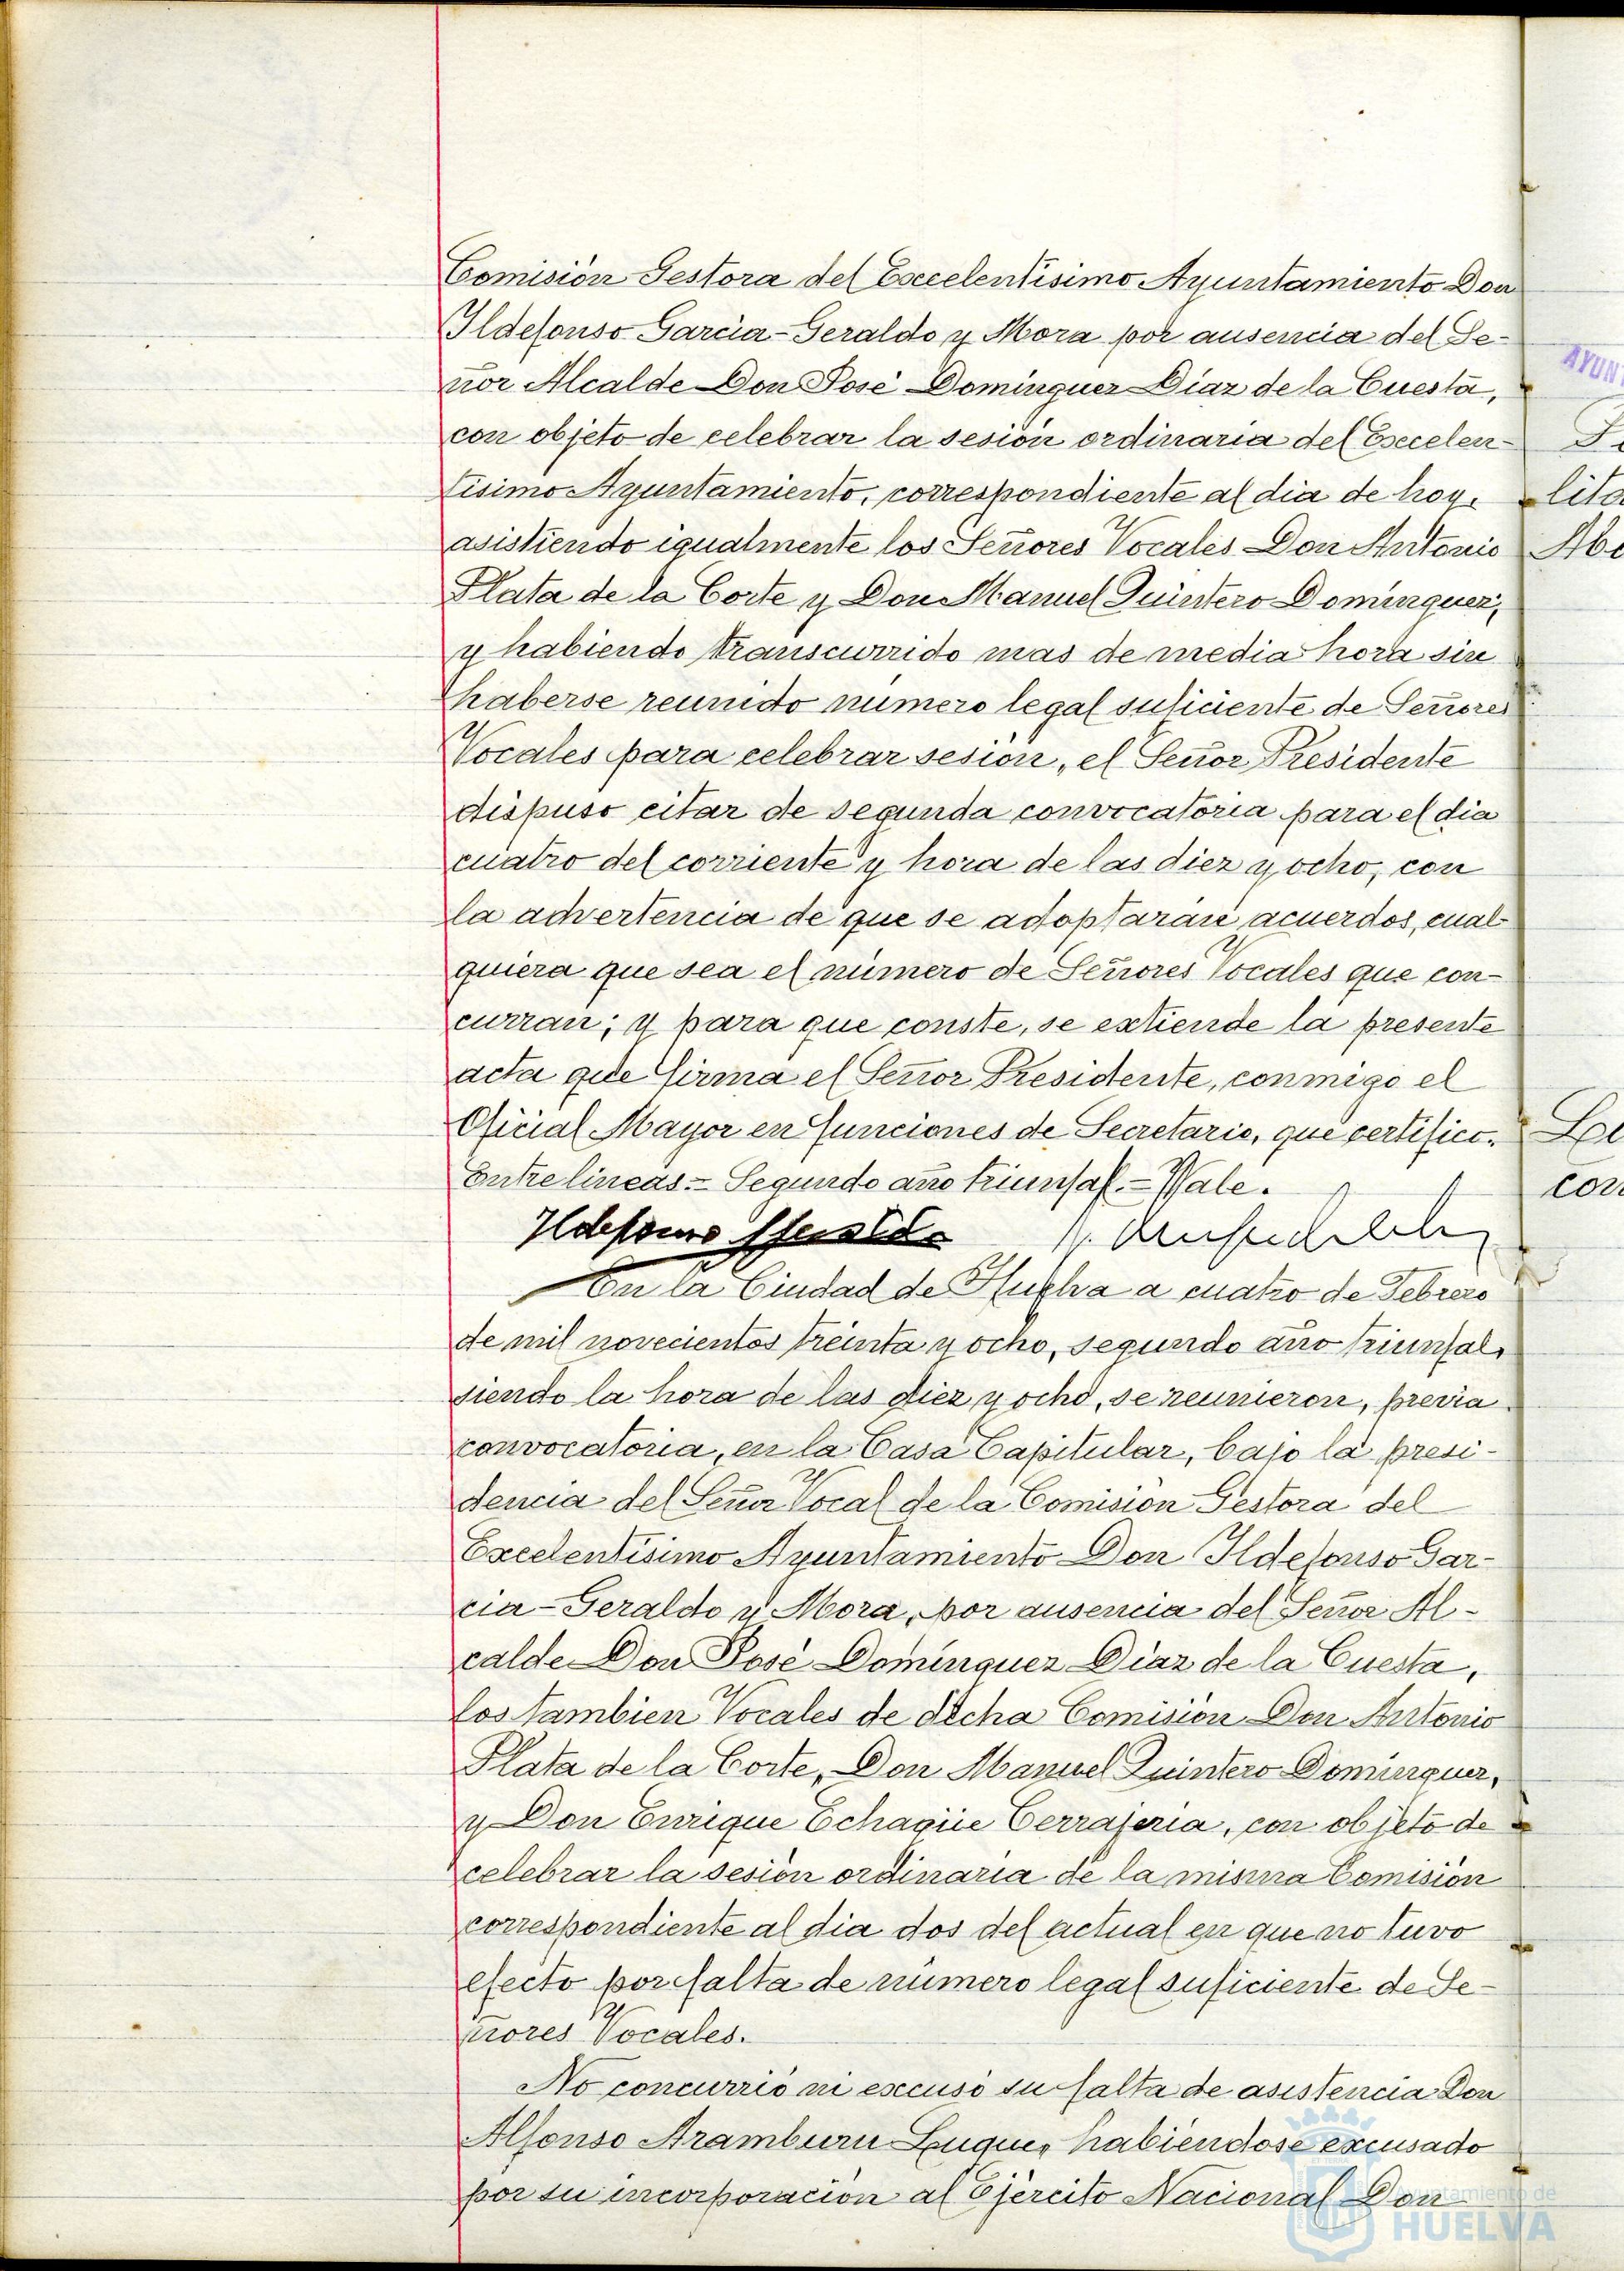 Comisión Gestora del Excelentísimo Ayuntamiento Don
Ildefonso García-Geraldo y Mora por ausencia del Se-
ñor Alcalde Don José Domínguez Díaz de la Cuesta,
con objeto de celebrar la sesión ordinaria del Excelen-
tísimo Ayuntamiento, correspondiente al dia de hoy,
asistiendo igualmente los Señores Vocales Don Antonio
Plata de la Corte y Don Manuel Quintero Domínguez,
y habiendo transcurrido mas de media hora sin
haberse reunido número legal suficiente de Señores
Vocales para celebrar sesion, el Señor Presidente
dispuso citar de segunda convocatoria para el dia
cuatro del corriente y hora de las diez y ocho, con
la advertencia de que se adoptarán acuerdos, cual-
quiera que sea el número de Señores Vocales que con-
curran; y para que conste, se extiende la presente
acta que firma el Señor Presidente, conmigo el
Oficial Mayor en funciones de Secretario, que certifico.
Entre lineas.= Segundo año triunfal.= Vale.
Ildefonso
En la Ciudad de Huelva a cuatro de Febrero
de mil novecientos treinta y ocho, segundo año triunfal,
siendo la hora de las diez y ocho, se reunieron, previa
convocatoria, en la Casa Capitular, bajo la presi-
dencia del Señor Vocal de la Comisión Gestora del
Excelentísimo Ayuntamiento Don Ildefonso Gar-
cía-Geraldo y Mora, por ausencia del Señor Al-
calde Don José Domínguez Díaz de la Cuesta,
los tambien Vocales de dicha Comisión Don Antonio
Plata de la Corte, Don Manuel Quintero Domínguez,
y Don Enrique Echagüe Cerrajería, con objeto de
celebrar la sesión ordinaria de la misma Comisión
correspondiente al dia dos del actual en que no tuvo
efecto por falta de número legal suficiente de Se-
ñores Vocales.
No concurrió ni excusó su falta de asistencia Don
Alfonso Aramburu Luque, habiéndose excusado
por su incorporación al Ejército Nacional Don
Ayuntamiento de
HUELVA